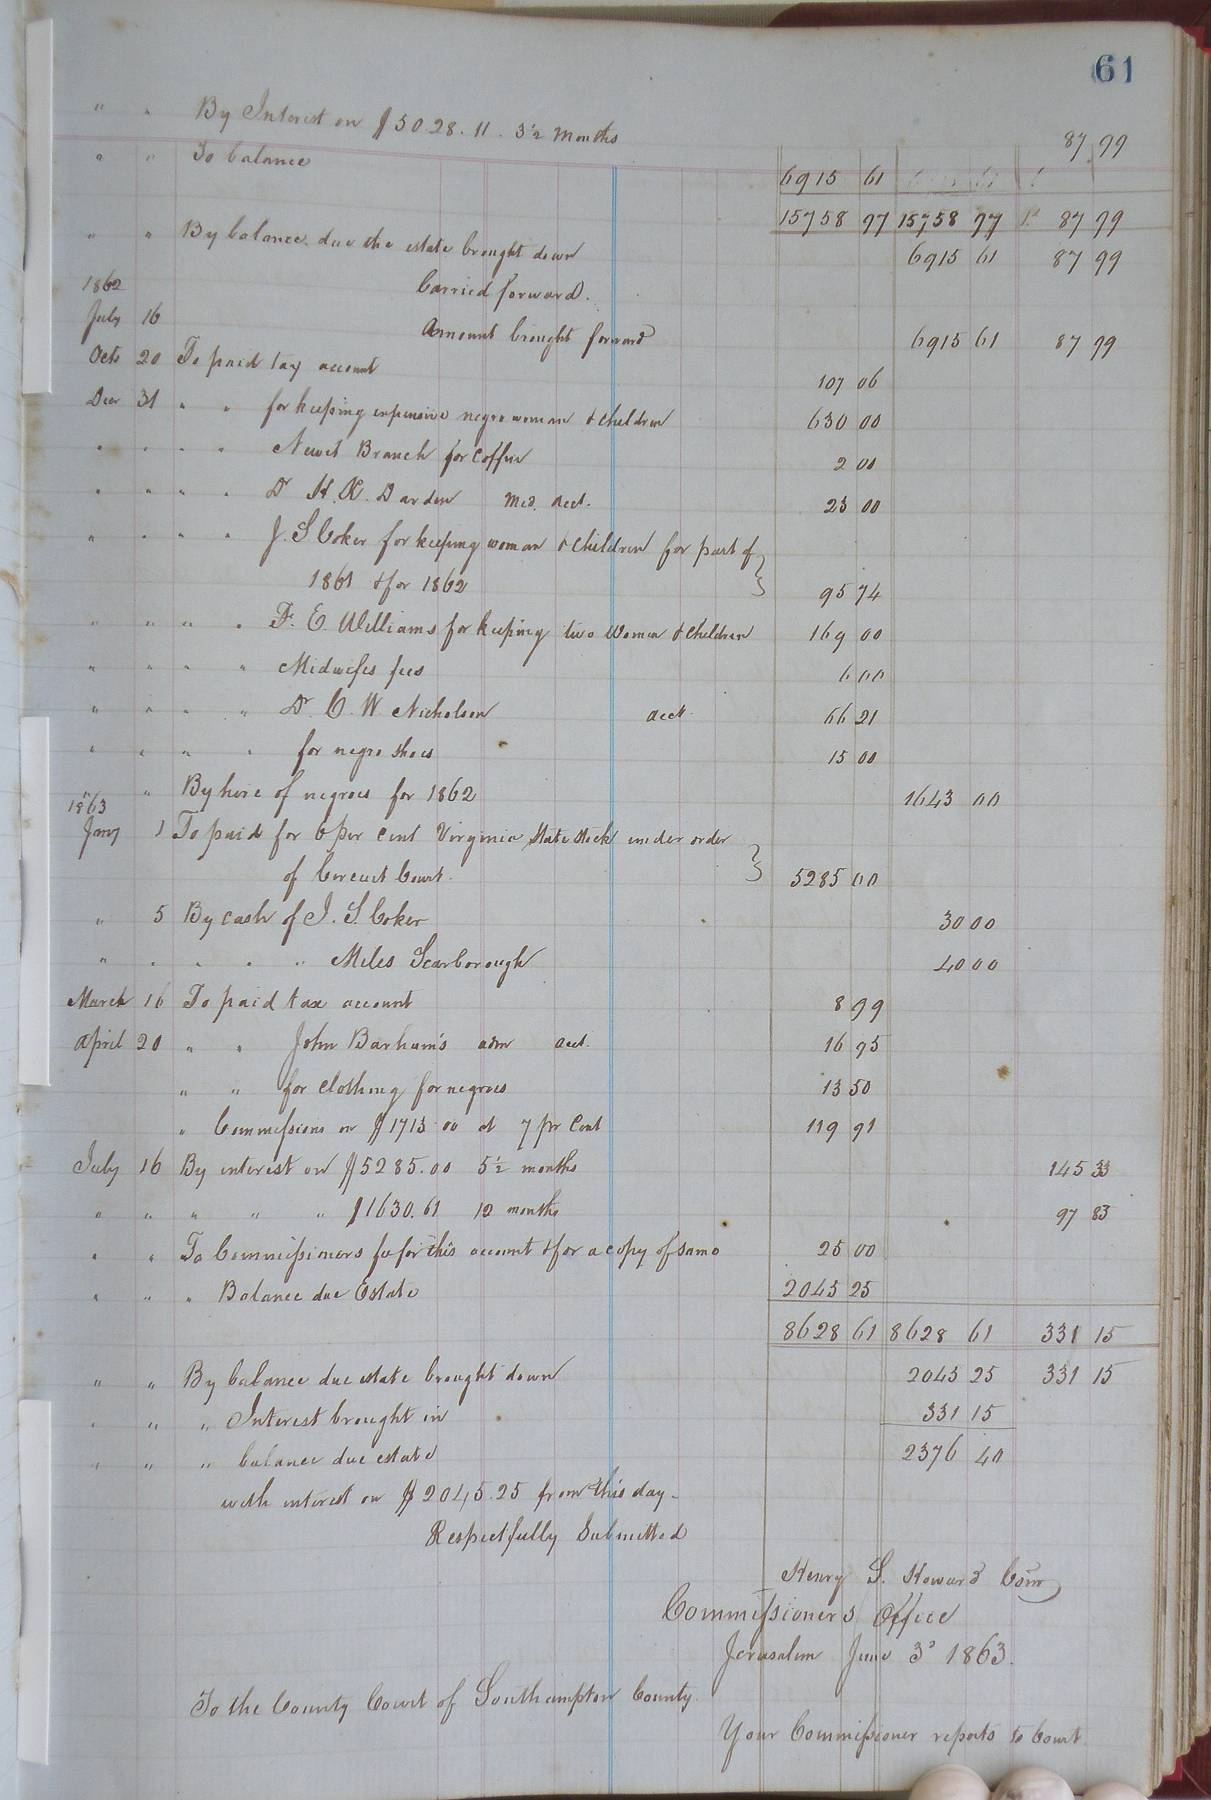 61
" " By Interest on $5028.11. 3½ Months 87 99
" " To balance 6915 61
15758 97 15758 97 87 99
" " By balance due the estate brought down 6915 61 87 99
Carried forward.
1862
July 16 Amount brought forward 6915 61 87 99
Octo 20 To paid tax account 107 06
Decr 31 " " for keeping expensive negro woman & children 630 00
" " " " Newit Branch for Coffin 2 00
" " " " Dr Darden Med. acct. 23 00
" " " " J. S Coker for keeping woman & children for part of
1861 & for 1862 } 95 74
" " " " F. E. Williams for keeping two women & children 169 00
" " " " Midwifes fees 6 00
" " " " Dr. C. W Nicholson acct. 66 21
" " " " for negro shoes 15 00
" " By hire of negroes for 1862 1643 00
1863
Jany 1 To paid for 6 per cent Virginia State stock under order
of Circuit Court. } 5285 00
" 5 By cash of J. S. Coker 30 00
" " " " " Miles Scarborough 40 00
March 16 To paid tax account 8 99
April 20 " " John Barham's adm acct. 16 95
" " for clothing for negroes 13 50
" Commissions on $1713.00 at 7 per Cent 119 91
July 16 By interest on $5285.00 5½ months 145 33
" " " " " $1630.61 12 months 97 83
" " To Commissioners fee for this account & for a copy of same 25 00
" " " Balance due Estate 2045 25
8628 61 8628 61 331 15
" " By balance due estate brought down 2045 25 331 15
" " " Interest brought in 331 15
" " " balance due estate 2376 40
with interest on $2045.25 from this day.
Respectfully Submitted
Henry S. Howard Comr
Commissioners Office
Jerusalem June 3d 1863.
To the County Court of Southampton County.
Your Commissioner reports to Court